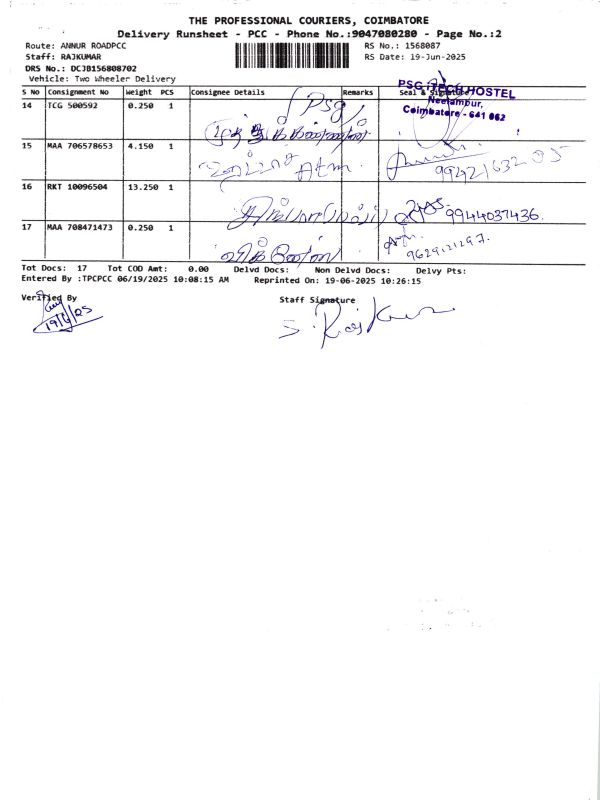 THE PROFESSIONAL COURIERS, COIMBATORE
Delivery Runsheet - PCC - Phone No.:9047080280 - Page No.:2
Route: ANNUR ROADPCC
RS No.: 1568087
Staff: RAJKUMAR
RS Date: 19-Jun-2025
DRS No.: DCJB156808702
Vehicle: Two Wheeler Delivery
PSG iTECH HOSTEL
Neelambur,
Coimbatore - 641 062
S No Consignment No Weight PCS Consignee Details Remarks Seal & Signature
14 TCG 500592 0.250 1 Psg
15 MAA 706578653 4.150 1 Atm.
16 RKT 10096504 13.250 1 9944037436.
17 MAA 708471473 0.250 1 9629121297.
Tot Docs: 17 Tot COD Amt: 0.00 Delvd Docs: Non Delvd Docs: Delvy Pts:
Entered By :TPCPCC 06/19/2025 10:08:15 AM Reprinted On: 19-06-2025 10:26:15
Verified By
Staff Signature
S. Rajkumar